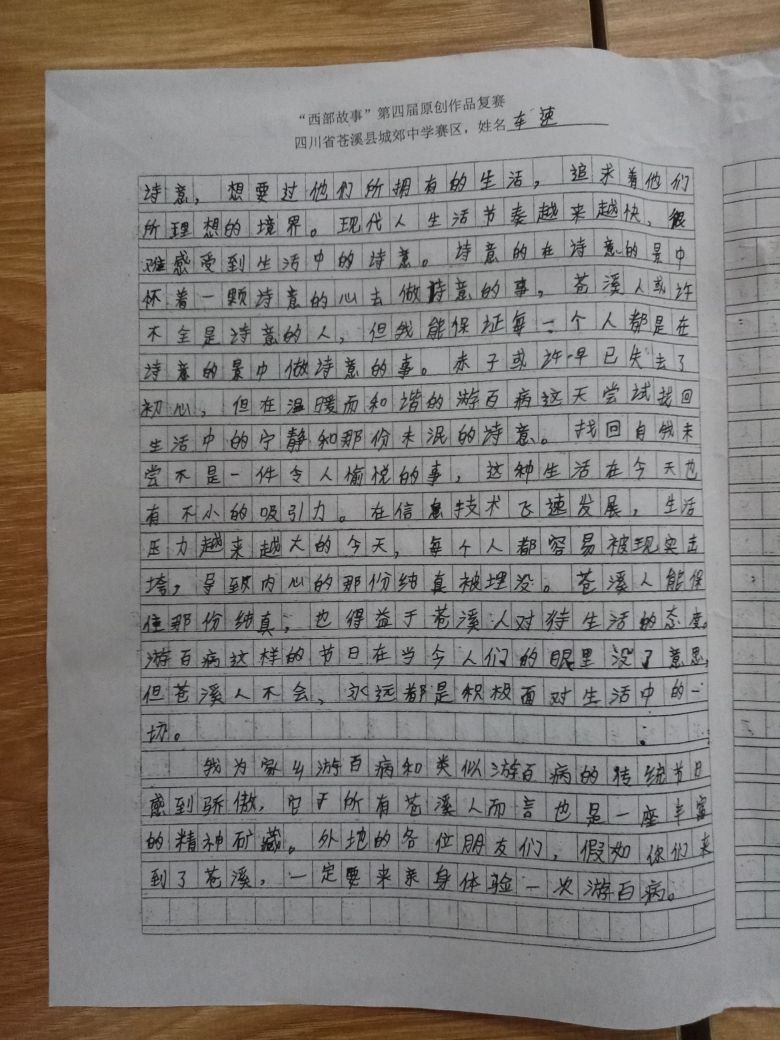 “西部故事”第四届原创作品复赛
四川省苍溪县城郊中学赛区，姓名 车速
诗意，想要过他们所拥有的生活，追求着他们
所理想的境界。现代人生活节奏越来越快，很
难感受到生活中的诗意。诗意的在诗意的景中
怀着一颗诗意的心去做诗意的事，苍溪人或许
不全是诗意的人，但我能保证每一个人都是在
诗意的景中做诗意的事。赤子或许早已失去了
初心，但在温暖而和谐的游百病这天尝试找回
生活中的宁静和那份未泯的诗意。找回自我未
尝不是一件令人愉悦的事，这种生活在今天也
有不小的吸引力。在信息技术飞速发展，生活
压力越来越大的今天，每个人都容易被现实击
垮，导致内心的那份纯真被埋没。苍溪人能保
住那份纯真，也得益于苍溪人对待生活的态度。
游百病这样的节日在当今人们的眼里没了意思，
但苍溪人不会，永远都是积极面对生活中的一
切。
我为家乡游百病和类似游百病的传统节日
感到骄傲，它于所有苍溪人而言也是一座丰富
的精神矿藏。外地的各位朋友们，假如你们来
到了苍溪，一定要来亲身体验一次游百病。